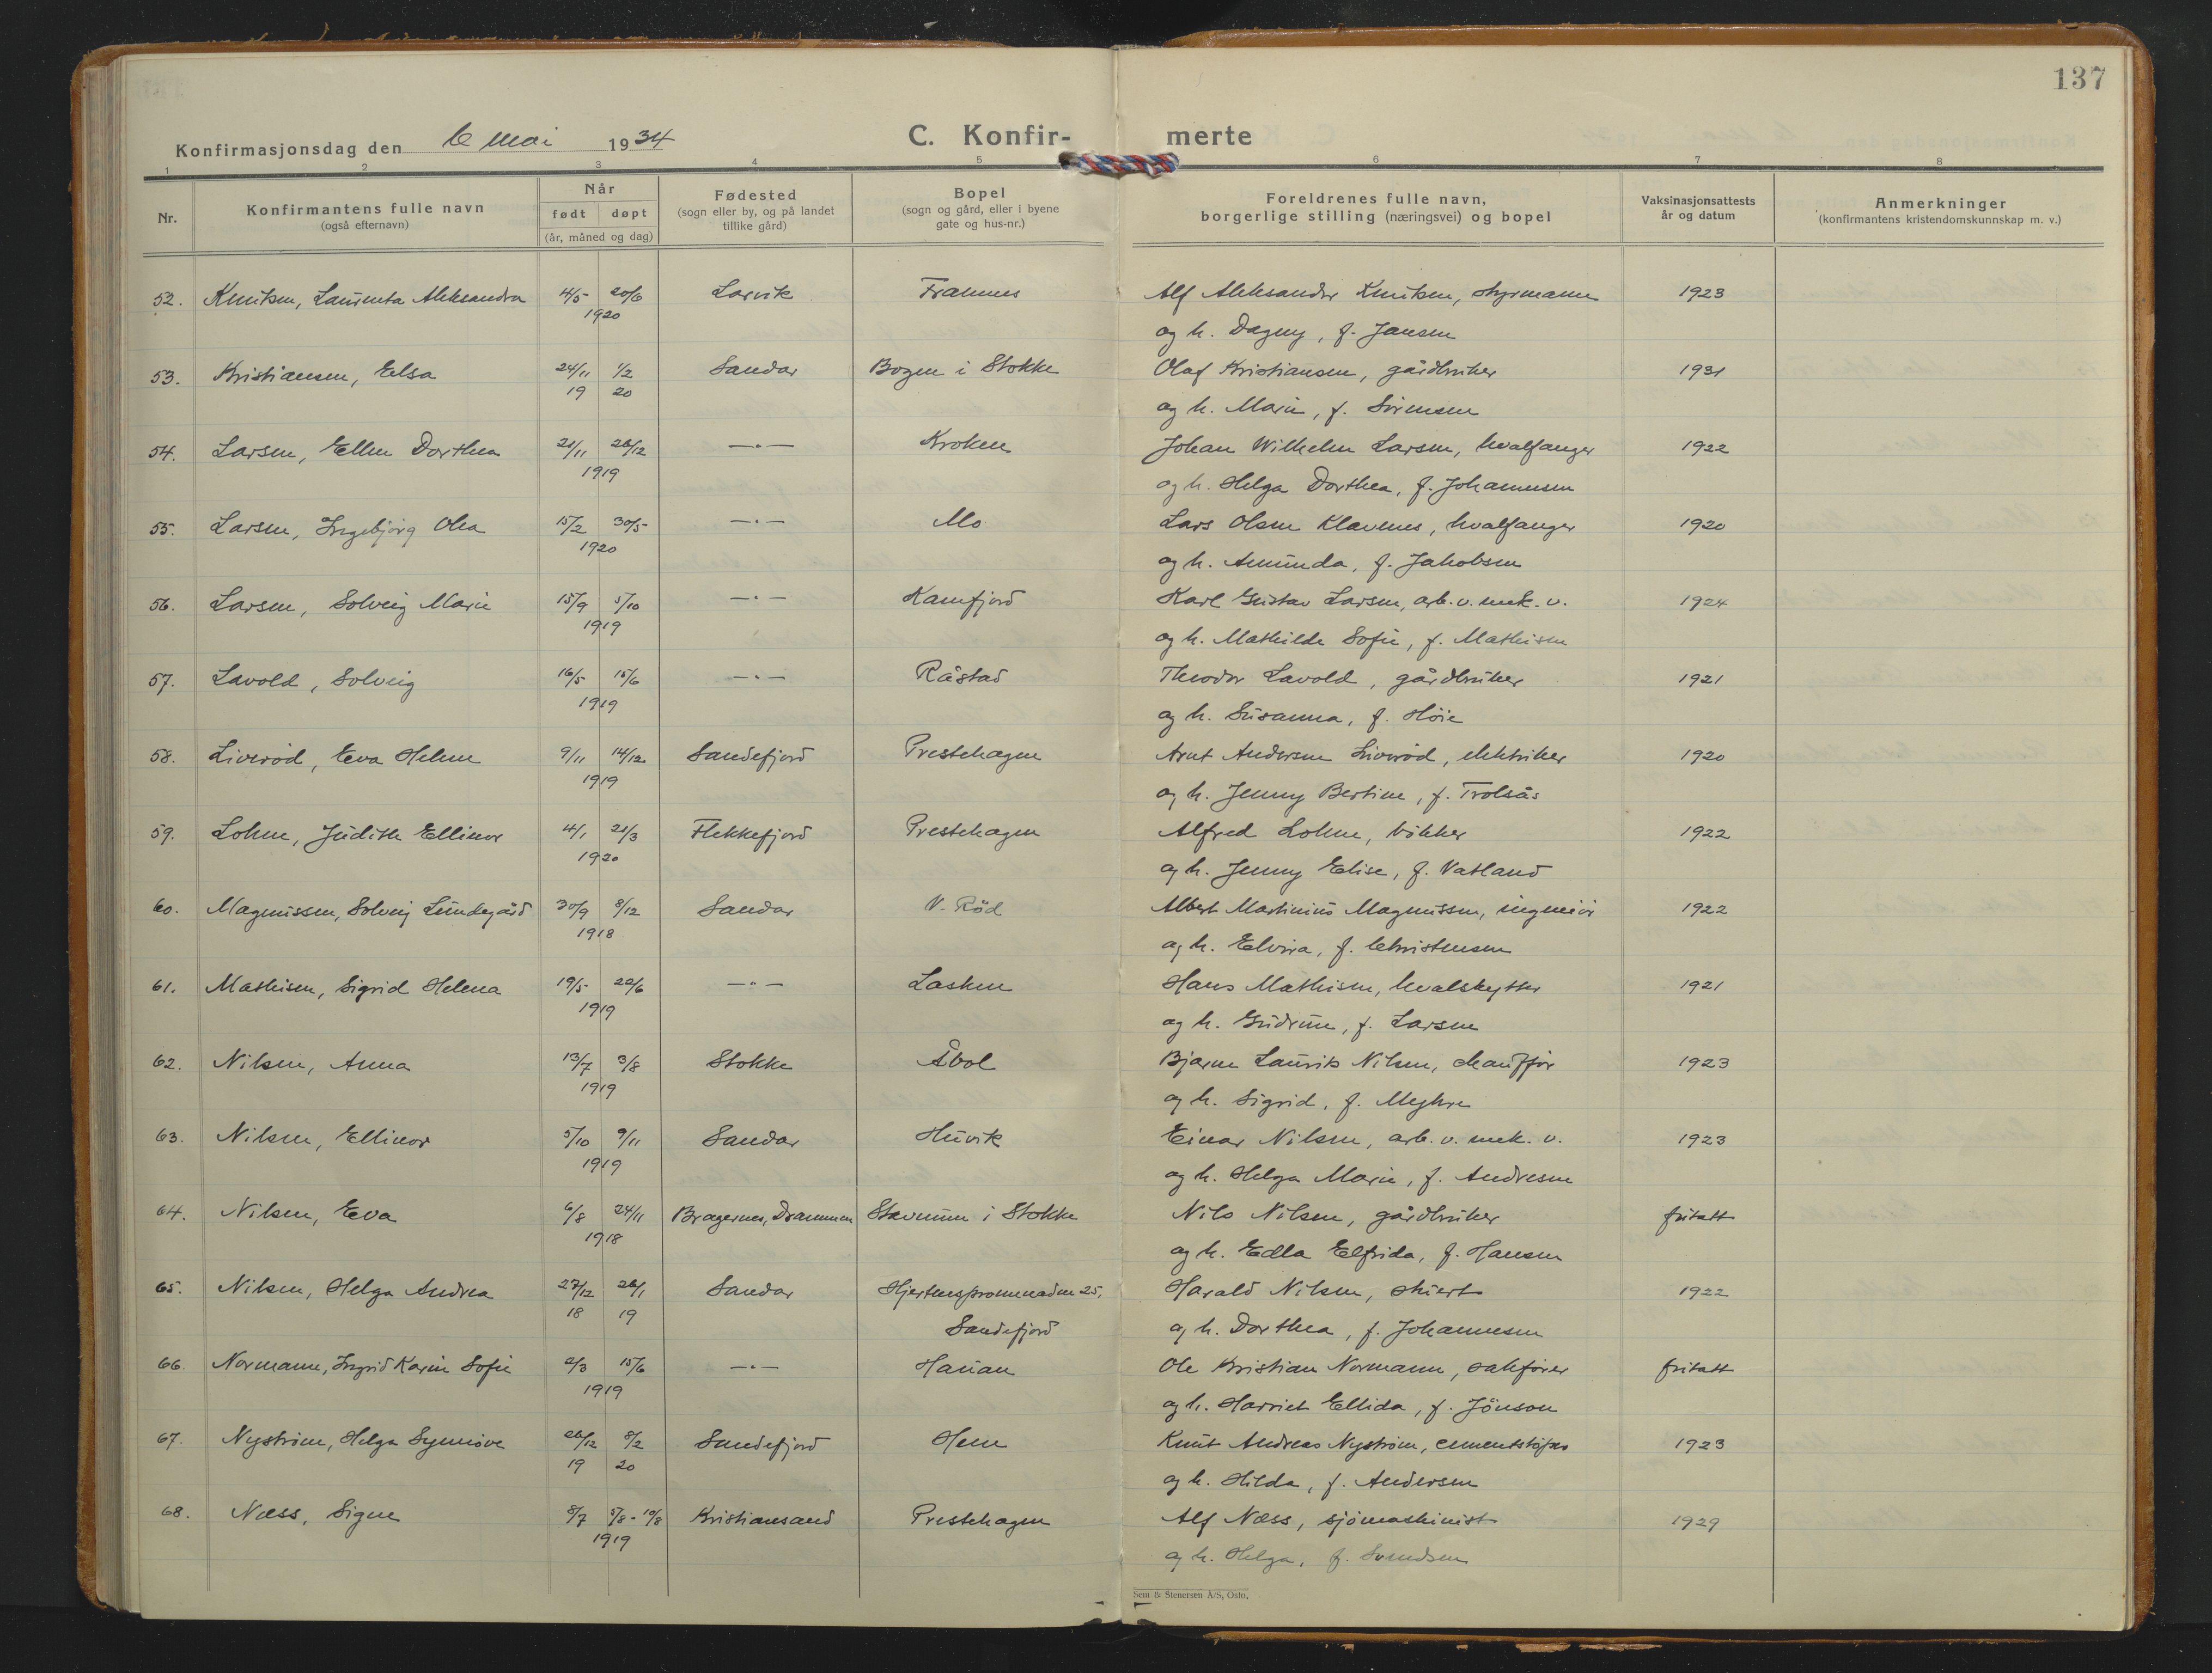 137
Konfirmasjonsdag den 6 mai 1934 C. Konfir- merte
1 2 3 4 5 6 7 8
Nr. Konfirmantens fulle navn (også efternavn) Når født døpt (år, måned og dag) Fødested (sogn eller by, og på landet tillike gård) Bopel (sogn og gård, eller i byene gate og hus-nr.) Foreldrenes fulle navn, borgerlige stilling (næringsvei) og bopel Vaksinasjonsattests år og datum Anmerkninger (konfirmantens kristendomskunnskap m. v.)
52. Knutsen, Laurenta Aleksandra 4/5 20/6 Larvik Framnes Alf Aleksander Knutsen, styrmann 1923
1920 og h. Dagny, f. Jansen
53. Kristiansen, Elsa 24/11 1/2 Sandar Bogen i Stokke Olaf Kristiansen, gårdbruker 1931
19 20 og h. Marie, f. Sørensen
54. Larsen, Ellen Dorthea 21/11 26/12 —„— Kroken Johan Wilhelm Larsen, hvalfanger 1922
1919 og h. Helga Dorthea, f. Johannesen
55. Larsen, Ingebjørg Olea 15/2 30/5 —„— Mo Lars Olsen Klavenes, hvalfanger 1920
1920 og h. Amunda, f. Jakobsen
56. Larsen, Solveig Marie 15/9 5/10 —„— Kamfjord Karl Gustav Larsen, arb. v. mek. v. 1924
1919 og h. Mathilde Sofie, f. Mathisen
57. Lavold, Solveig 16/5 15/6 —„— Råstad Theodor Lavold, gårdbruker 1921
1919 og h. Susanna, f. Høie
58. Liverød, Eva Helene 9/11 14/12 Sandefjord Prestehagen Arnt Andersen Liverød, elektriker 1920
1919 og h. Jenny Bertine, f. Trolsås
59. Lohne, Judith Ellinor 4/1 21/3 Flekkefjord Prestehagen Alfred Lohne, bøkker 1922
1920 og h. Jenny Elise, f. Vatland
60. Magnussen, Solveig Lundegård 30/9 8/12 Sandar N. Rød Albert Martinius Magnussen, ingeniør 1922
1918 og h. Elvira, f. Christensen
61. Mathisen, Sigrid Helena 19/5 22/6 —„— Lasken Hans Mathisen, hvalskytter 1921
1919 og h. Gudrun, f. Larsen
62. Nilsen, Anna 13/7 3/8 Stokke Åbol Bjarne Laurits Nilsen, chauffør 1923
1919 og h. Sigrid, f.
63. Nilsen, Ellinor 5/10 9/11 Sandar Huvik Einar Nilsen, arb. v. mek. v. 1923
1919 og h. Helga Marie, f. Andresen
64. Nilsen, Eva 6/8 24/11 Bragernes, Drammen Stavnum i Stokke Nils Nilsen, gårdbruker fritatt
1918 og h. Edla Elfrida, f. Hansen
65. Nilsen, Helga Andrea 27/12 26/1 Sandar Hjertnespromenaden 25, Harald Nilsen, stuert 1922
18 19 Sandefjord og h. Dorthea, f. Johannesen
66. Normann, Ingrid Karin Sofie 2/3 15/6 —„— Hauan Ole Kristian Normann, sakfører fritatt
1919 og h. Harriet Ellida, f. Jönson
67. Nystrøm, Helga Synnøve 26/12 8/2 Sandefjord Hem Knut Andreas Nystrøm, cementstøper 1923
19 20 og h. Hilda, f. Andersen
68. Næss, Signe 8/7 5/8-10/8 Kristiansand Prestehagen Alf Næss, sjømaskinist 1929
1919 og h. Helga, f. Svendsen
Sem & Stenersen A/S, Oslo.